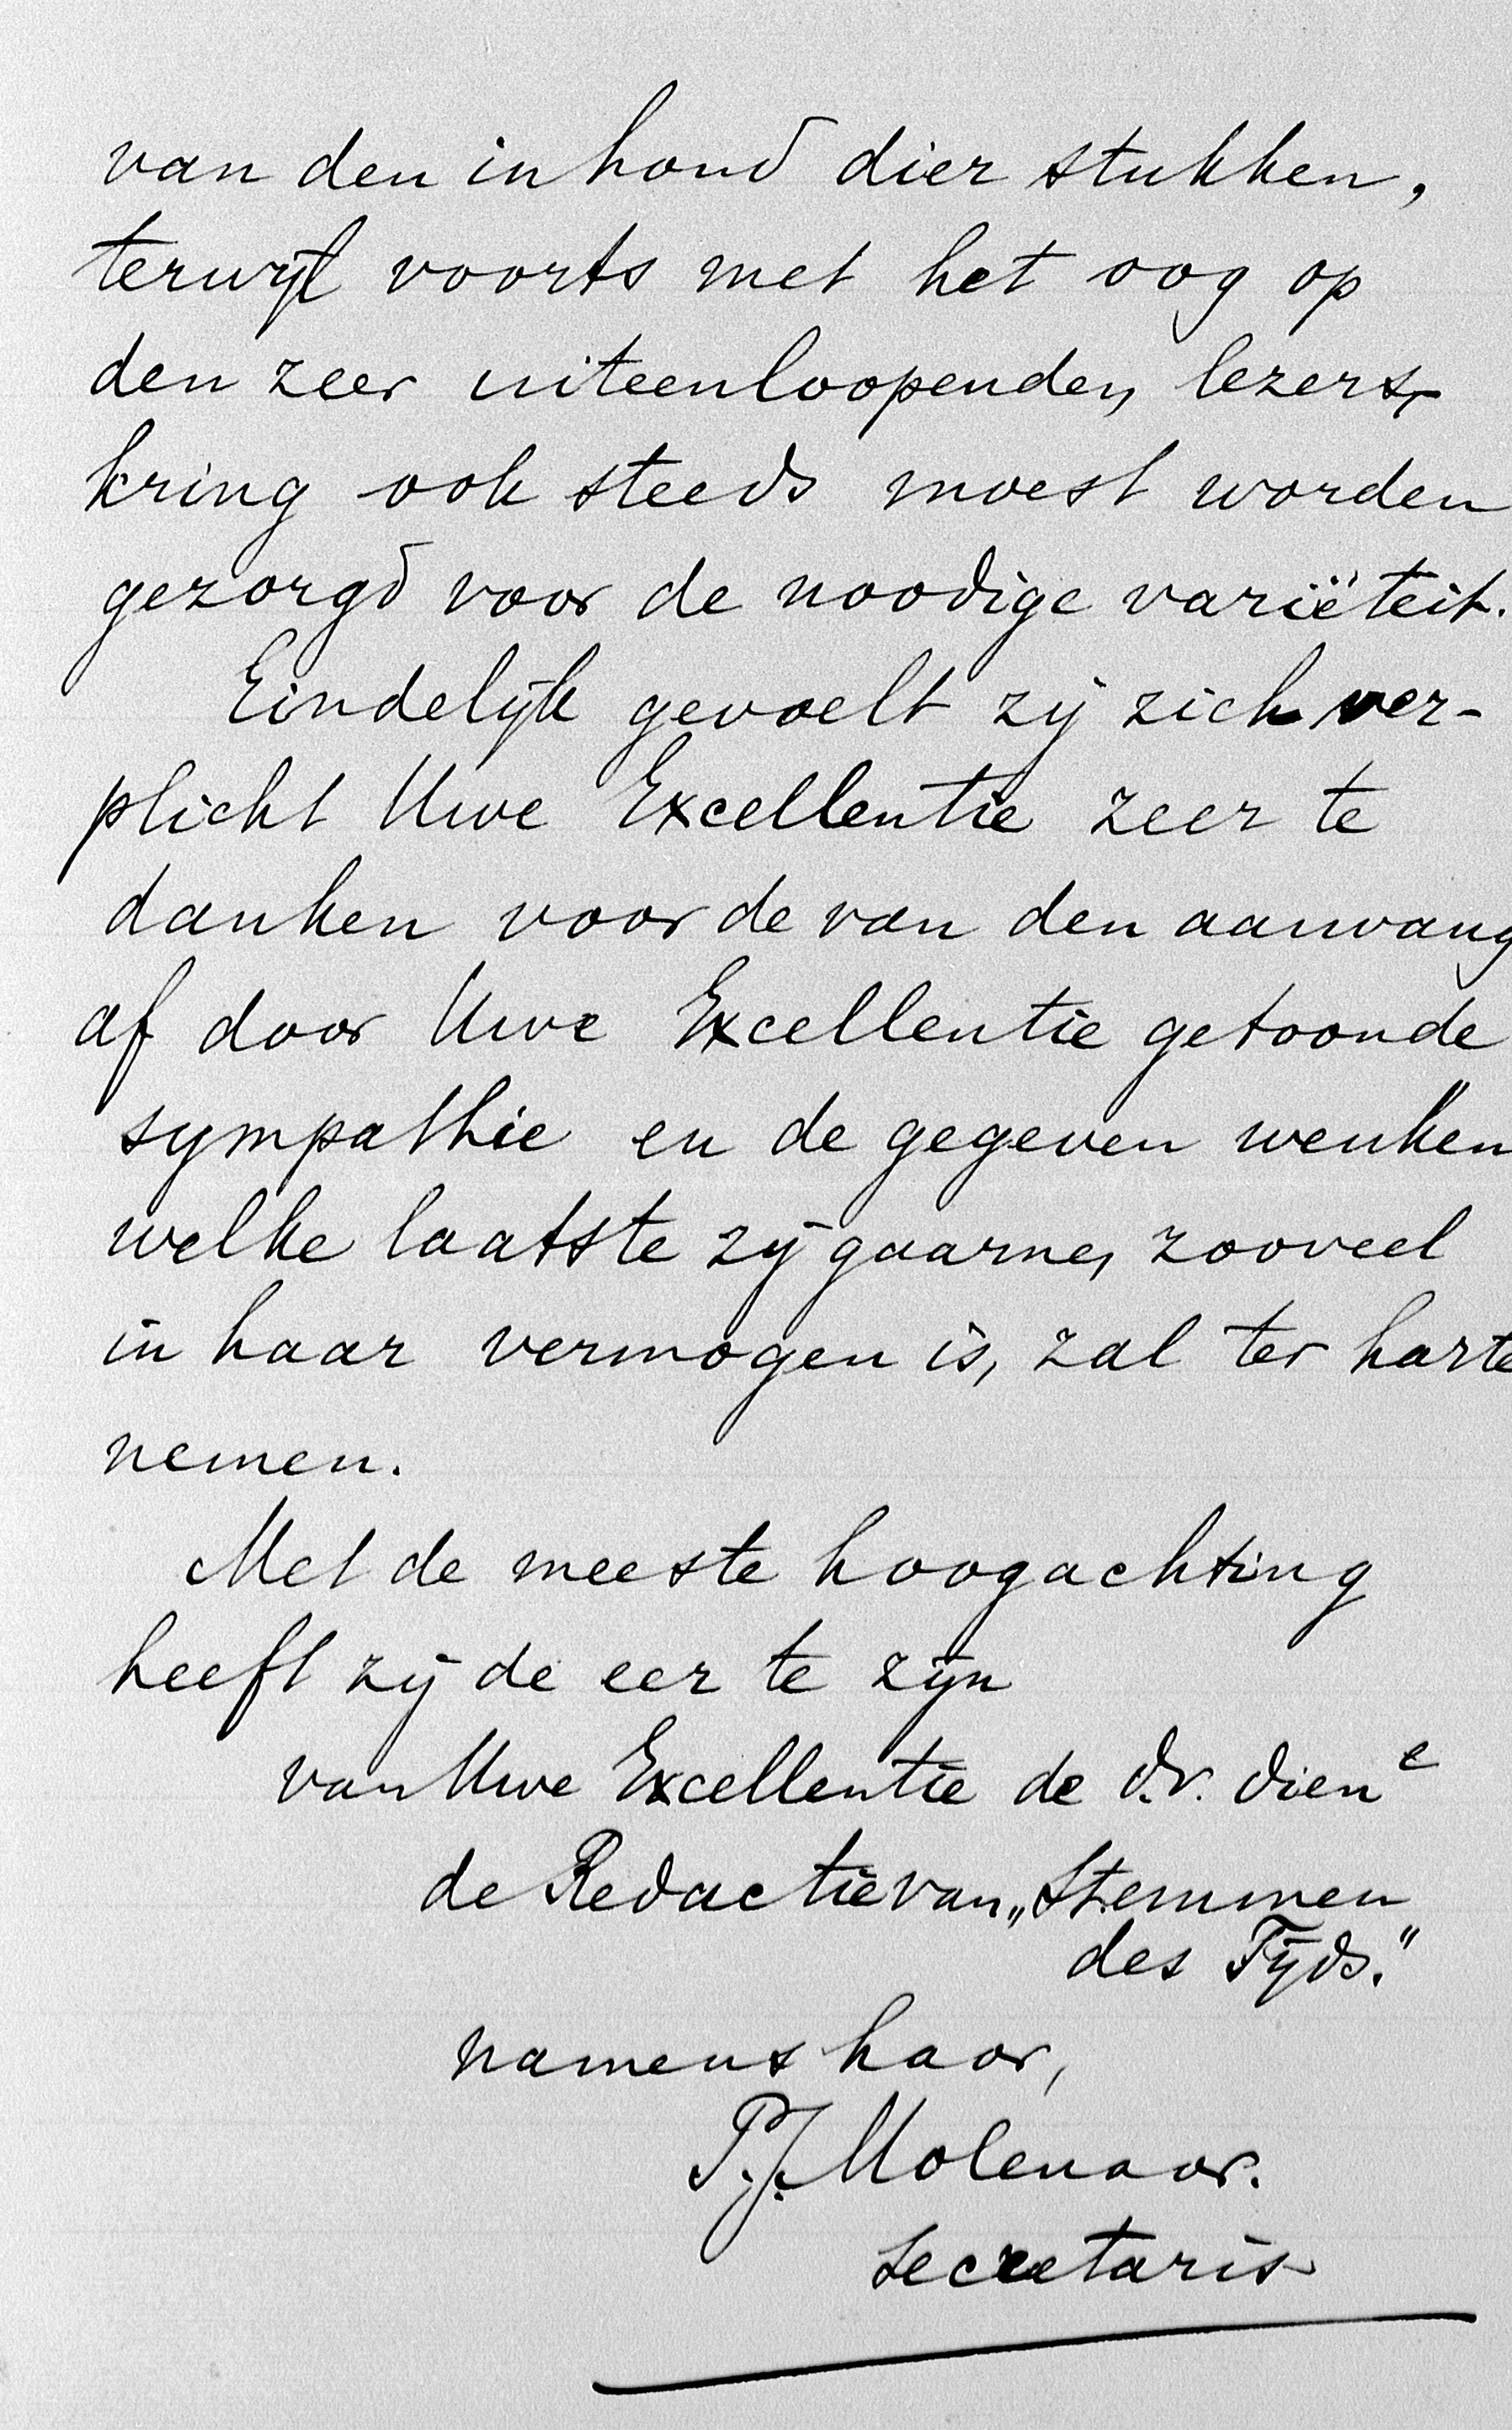 van den inhoud dier stukken,
terwijl voorts met het oog op
den zeer uiteenloopenden lezers-
kring ook steeds moest worden
gezorgd voor de noodige variëteit.
Eindelijk gevoelt zij zich ver-
plicht Uwe Excellentie zeer te
danken voor de van den aanvang
af door Uwe Excellentie getoonde
sympathie en de gegeven wenken
welke laatste zij gaarne, zooveel
in haar vermogen is, zal ter harte
nemen.
Met de meeste hoogachting
heeft zij de eer te zijn
van Uwe Excellentie de d.v. dienᵉ
de Redactie van „Stemmen
des Tijds."
namens haar,
P.J. Molenaar.
Secretaris